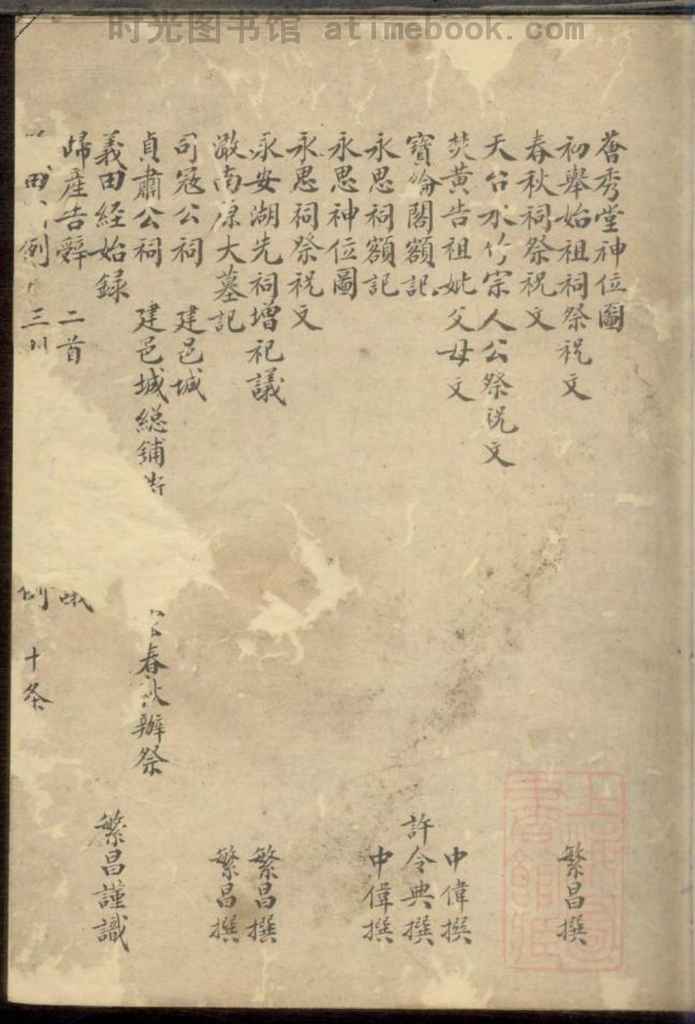 时光图书馆 atimebook.com
薈秀堂神位圖
初舉始祖祠祭祝文 繁昌撰
春秋祠祭祝文
天台水竹宗人公祭祝文
焚黃告祖妣父母文 中偉撰
寶綸閣額記 許令典撰
永思祠額記 中偉撰
永思神位圖
永思祠祭祝文
永安湖先祠增祀議 繁昌撰
澉南康大墓記 繁昌撰
司冦公祠 建邑城
貞肅公祠 建邑城総鋪 春秋辦祭
義田経始録 繁昌謹識
歸產告辭 二首
田 例 三 十条